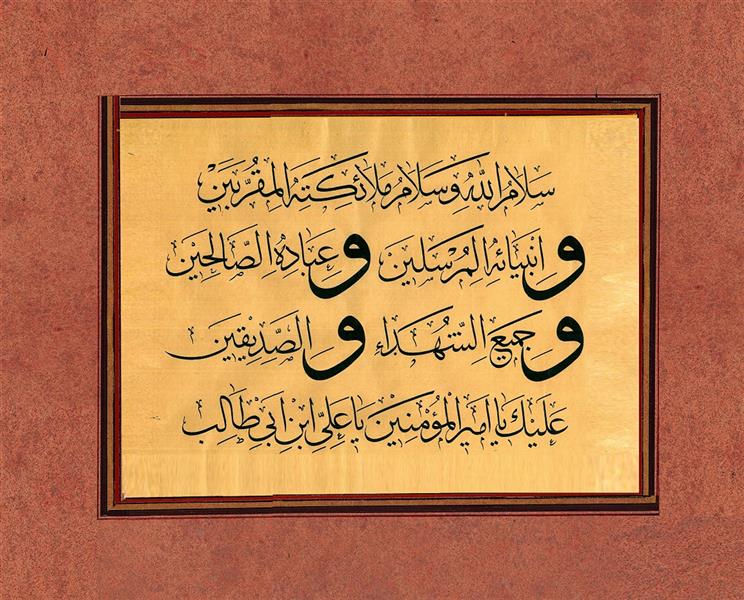 سَلَامُ اللهِ وَسَلَامُ مَلَائِكَتِهِ الْمُقَرَّبِينَ
وَ أَنْبِيَائِهِ الْمُرْسَلِينَ وَ عِبَادِهِ الصَّالِحِينَ
وَ جَمِيعِ الشُّهَدَاءِ وَ الصِّدِّيقِينَ
عَلَيْكَ يَا أَمِيرَ الْمُؤْمِنِينَ يَا عَلِيَّ ابْنَ أَبِي طَالِبٍ